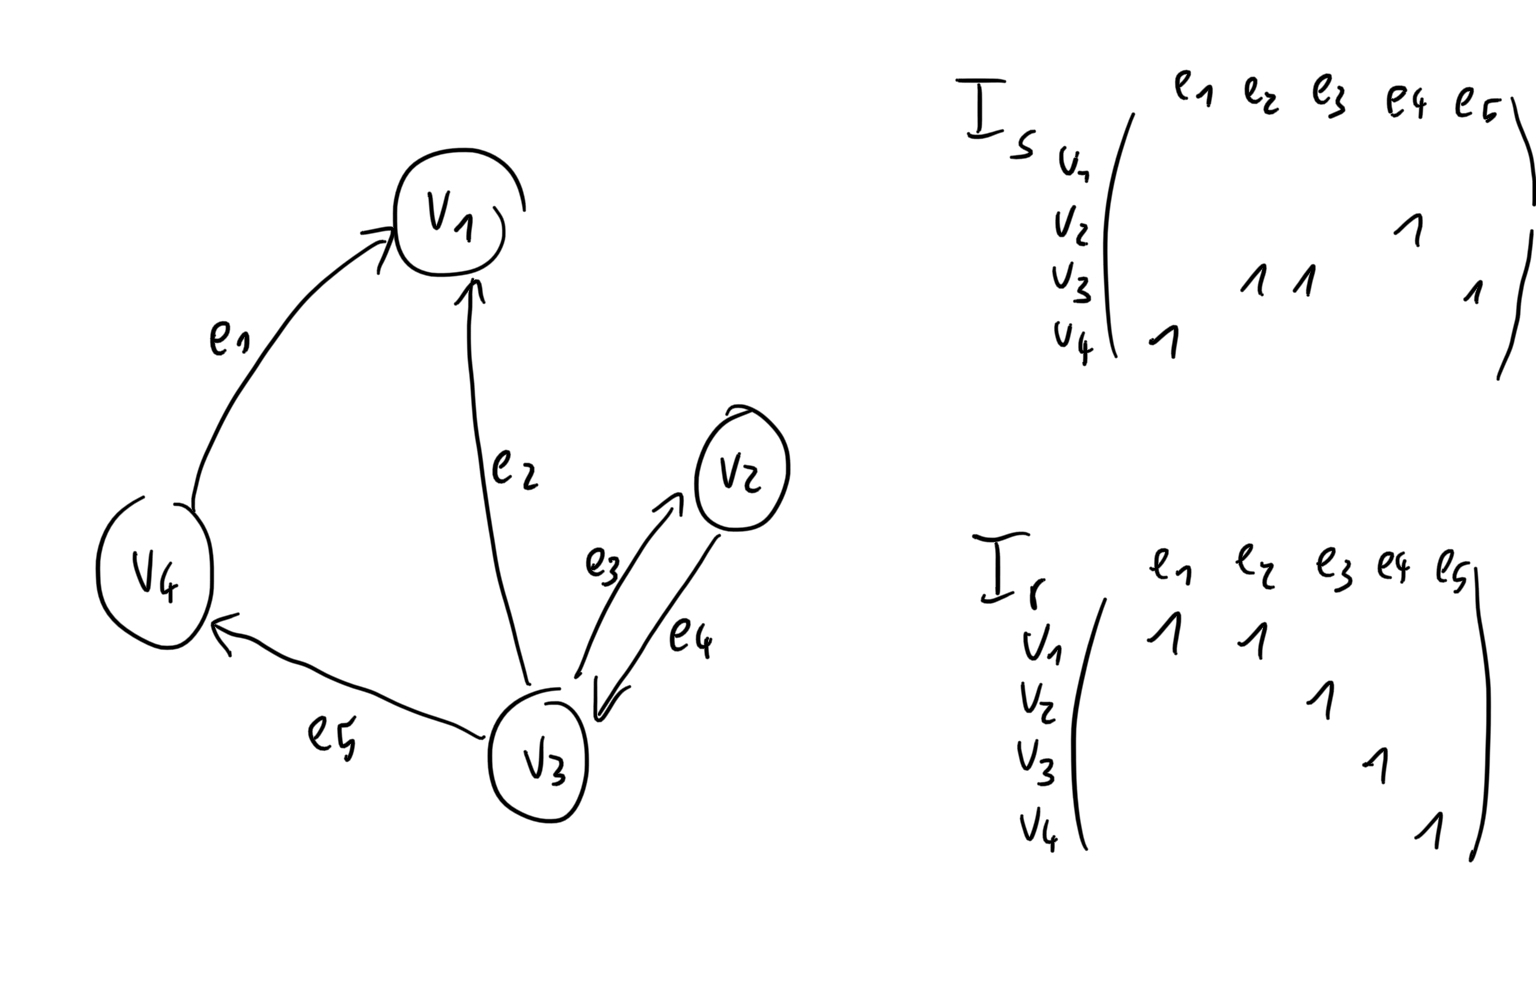 V1
e1
e2
V2
V4
e3
e4
e5
V3
I s
e1 e2 e3 e4 e5
V1
V2 1
V3 1 1 1
V4 1
I r
e1 e2 e3 e4 e5
V1 1 1
V2 1
V3 1
V4 1